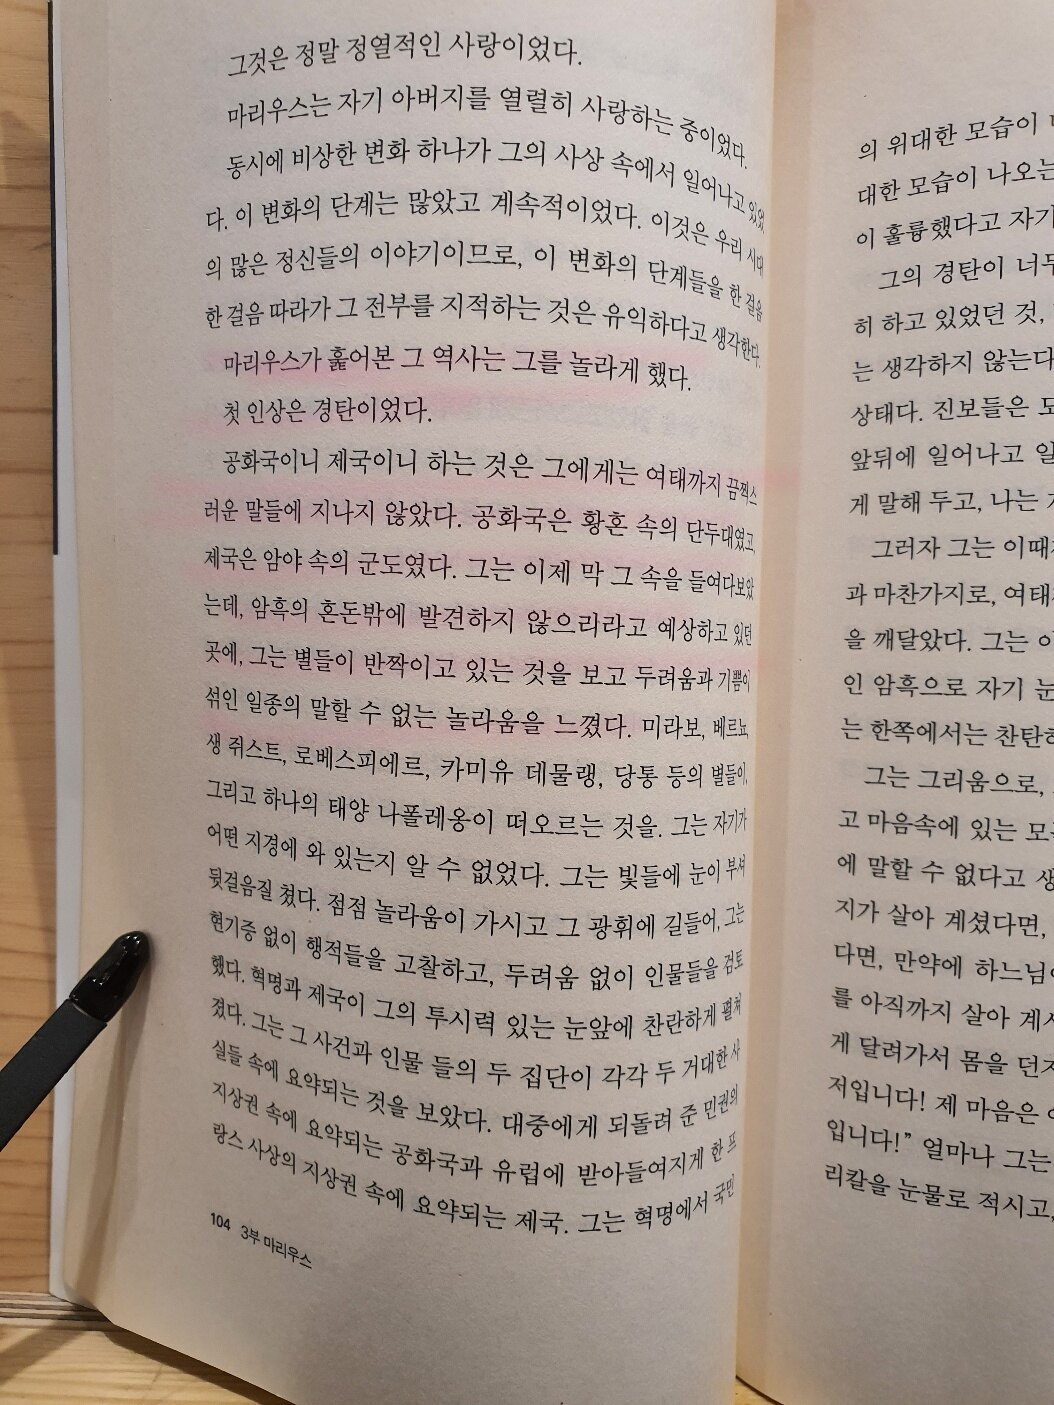 그것은 정말 정열적인 사랑이었다.
마리우스는 자기 아버지를 열렬히 사랑하는 중이었다.
동시에 비상한 변화 하나가 그의 사상 속에서 일어나고 있었
다. 이 변화의 단계는 많았고 계속적이었다. 이것은 우리 시대
의 많은 정신들의 이야기이므로, 이 변화의 단계들을 한 걸음
한 걸음 따라가 그 전부를 지적하는 것은 유익하다고 생각한다.
마리우스가 훑어본 그 역사는 그를 놀라게 했다.
첫 인상은 경탄이었다.
공화국이니 제국이니 하는 것은 그에게는 여태까지 끔찍스
러운 말들에 지나지 않았다. 공화국은 황혼 속의 단두대였고,
제국은 암야 속의 군도였다. 그는 이제 막 그 속을 들여다보았
는데, 암흑의 혼돈밖에 발견하지 않으리라고 예상하고 있던
곳에, 그는 별들이 반짝이고 있는 것을 보고 두려움과 기쁨이
섞인 일종의 말할 수 없는 놀라움을 느꼈다. 미라보, 베르뇨,
생 쥐스트, 로베스피에르, 카미유 데물랭, 당통 등의 별들이,
그리고 하나의 태양 나폴레옹이 떠오르는 것을. 그는 자기가
어떤 지경에 와 있는지 알 수 없었다. 그는 빛들에 눈이 부셔
뒷걸음질 쳤다. 점점 놀라움이 가시고 그 광휘에 길들어, 그는
현기증 없이 행적들을 고찰하고, 두려움 없이 인물들을 검토
했다. 혁명과 제국이 그의 투시력 있는 눈앞에 찬란하게 펼쳐
졌다. 그는 그 사건과 인물 들의 두 집단이 각각 두 거대한 사
실들 속에 요약되는 것을 보았다. 대중에게 되돌려 준 민권의
지상권 속에 요약되는 공화국과 유럽에 받아들여지게 한 프
랑스 사상의 지상권 속에 요약되는 제국. 그는 혁명에서 국민
104 3부 마리우스
의 위대한 모습이
대한 모습이 나오는
이 훌륭했다고 자기
그의 경탄이 너무
히 하고 있었던 것,
는 생각하지 않는다
상태다. 진보들은
앞뒤에 일어나고
게 말해 두고, 나는
그러자 그는 이때
과 마찬가지로, 여태
을 깨달았다. 그는
인 암흑으로 자기
는 한쪽에서는 찬탄
그는 그리움으로,
고 마음속에 있는
에 말할 수 없다고
지가 살아 계셨다면,
다면, 만약에 하느님
를 아직까지 살아
게 달려가서 몸을
저입니다! 제 마음은
입니다!” 얼마나 그는
리칼을 눈물로 적시고,